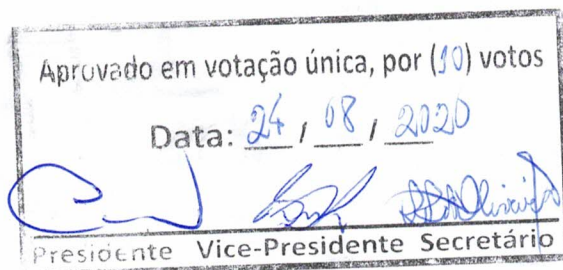 Aprovado em votação única, por (10) votos
Data: 24 / 08 / 2020
Presidente Vice-Presidente Secretário